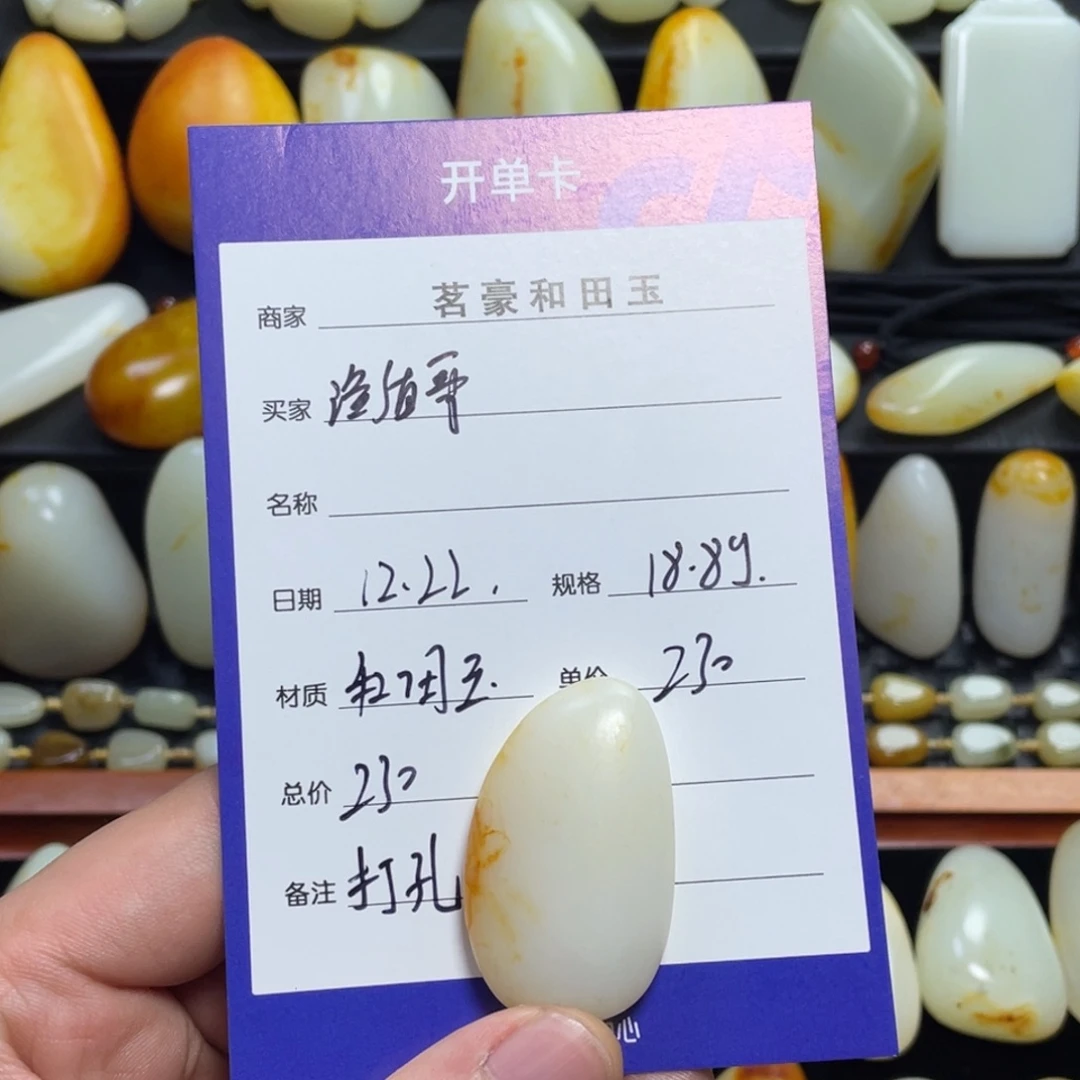 开单卡
商家 茗豪和田玉
买家
名称
日期 12.22. 规格 18.89.
材质 和田玉. 单价 230
总价 230
备注 打孔
心